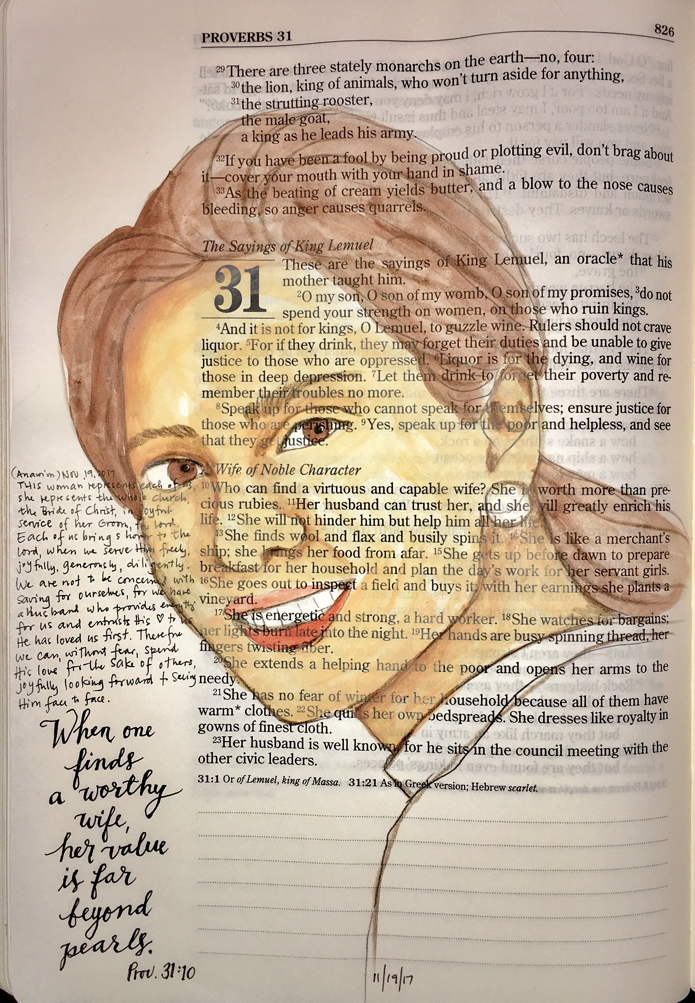 PROVERBS 31
826
29There are three stately monarchs on the earth—no, four:
30the lion, king of animals, who won't turn aside for anything,
31the strutting rooster,
the male goat,
a king as he leads his army.
32If you have been a fool by being proud or plotting evil, don't brag about
it—cover your mouth with your hand in shame.
33As the beating of cream yields butter, and a blow to the nose causes
bleeding, so anger causes quarrels.
The Sayings of King Lemuel
31
These are the sayings of King Lemuel, an oracle* that his
mother taught him.
2O my son, O son of my womb, O son of my promises, 3do not
spend your strength on women, on those who ruin kings.
4And it is not for kings, O Lemuel, to guzzle wine. Rulers should not crave
liquor. 5For if they drink, they may forget their duties and be unable to give
justice to those who are oppressed. 6Liquor is for the dying, and wine for
those in deep depression. 7Let them drink to forget their poverty and re-
member their troubles no more.
8Speak up for those who cannot speak for themselves; ensure justice for
those who are perishing. 9Yes, speak up for the poor and helpless, and see
that they get justice.
Wife of Noble Character
10Who can find a virtuous and capable wife? She is worth more than pre-
cious rubies. 11Her husband can trust her, and she will greatly enrich his
life. 12She will not hinder him but help him all her life.
13She finds wool and flax and busily spins it. 14She is like a merchant's
ship; she brings her food from afar. 15She gets up before dawn to prepare
breakfast for her household and plan the day's work for her servant girls.
16She goes out to inspect a field and buys it; with her earnings she plants a
vineyard.
17She is energetic and strong, a hard worker. 18She watches for bargains;
her lights burn late into the night. 19Her hands are busy spinning thread, her
fingers twisting fiber.
20She extends a helping hand to the poor and opens her arms to the
needy.
21She has no fear of winter for her household because all of them have
warm* clothes. 22She quilts her own bedspreads. She dresses like royalty in
gowns of finest cloth.
23Her husband is well known, for he sits in the council meeting with the
other civic leaders.
31:1 Or of Lemuel, king of Massa. 31:21 As in Greek version; Hebrew scarlet.
(Anawim) Nov 19, 2017
This woman represents each of us
she represents the whole church,
the Bride of Christ, in joyful
service of her Groom, the lord.
Each of us brings honor to the
lord, when we serve Him freely,
joyfully, generously, diligently.
We are not to be concerned with
saving for ourselves, for we have
a husband who provides
for us and entrusts this ♡ to us
He has loved us first. Therefore
we can, without fear, spend
His love for the sake of others,
joyfully looking forward to seeing
Him face to face.
When one
finds
a worthy
wife,
her value
is far
beyond
pearls.
Prov. 31:10
11/19/17